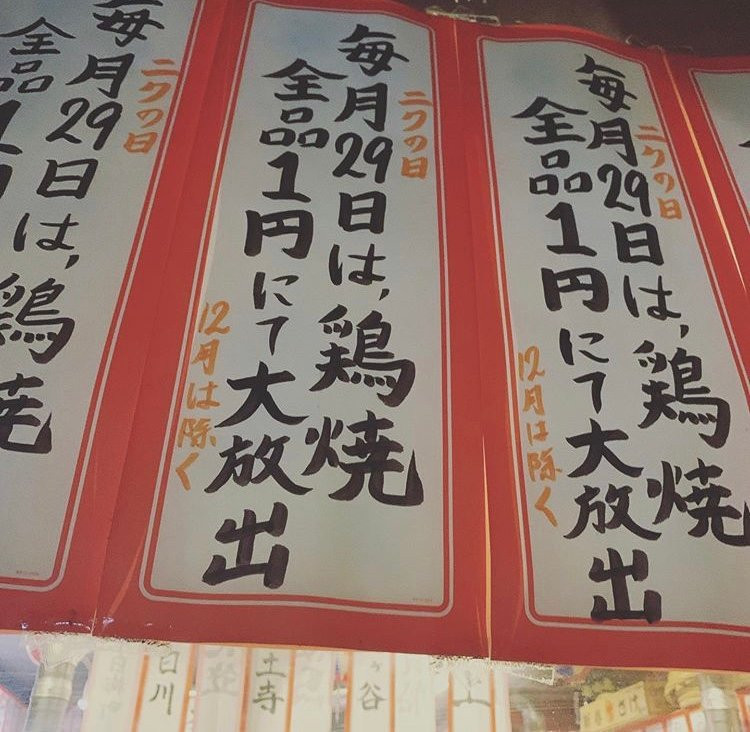 ニクの日
毎月29日は、鶏焼
全品1円にて大放出
12月は除く
ニクの日
毎月29日は、鶏焼
全品1円にて大放出
12月は除く
ニクの日
毎月29日は、鶏焼
全品1
谷
土寺
白川